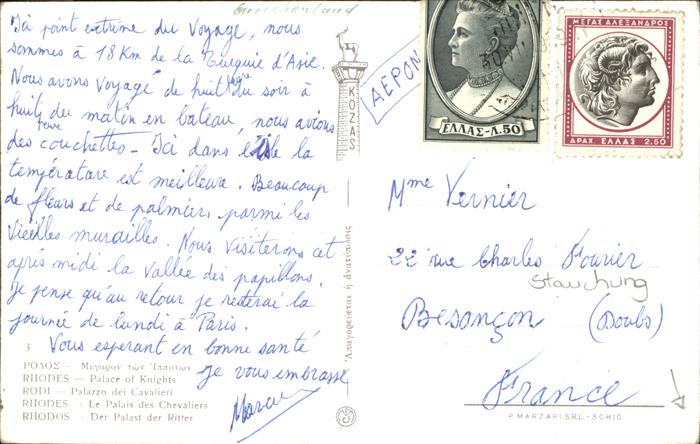 Griechenland
Ici point extrême du voyage, nous
sommes à 18 Km de la Turquie d'Asie.
Nous avons voyagé de huit heure du soir à
huit heure du matin en bateau, nous avions
des couchettes - Ici dans l'isle la
température est meilleure. Beaucoup
de fleurs et de palmiers, parmi les
vieilles murailles. Nous visiterons cet
après midi la vallée des papillons.
Je pense qu'au retour je resterai la
journée de lundi à Paris.
Vous espérant en bonne santé
Je vous embrasse
3
ΡΟΔΟΣ - Μέγαρον τῶν Ἱπποτῶν
RHODES - Palace of Knights
RODI - Palazzo dei Cavalieri
RHODES - Le Palais des Chevaliers
RHODOS - Der Palast der Ritter
KOZAS
Ἀπαγορεύεται ἡ ἀνατύπωσις
ΑΕΡΟΠ
ΕΛΛΑΣ-Λ.50
ΜΕΓΑΣ ΑΛΕΞΑΝΔΡΟΣ
ΔΡΑΧ. ΕΛΛΑΣ 2.50
Mme Vernier
22 rue Charles Fourier
Stauchung
Besançon (Doubs)
France
P. MARZARI S.R.L. - SCHIO